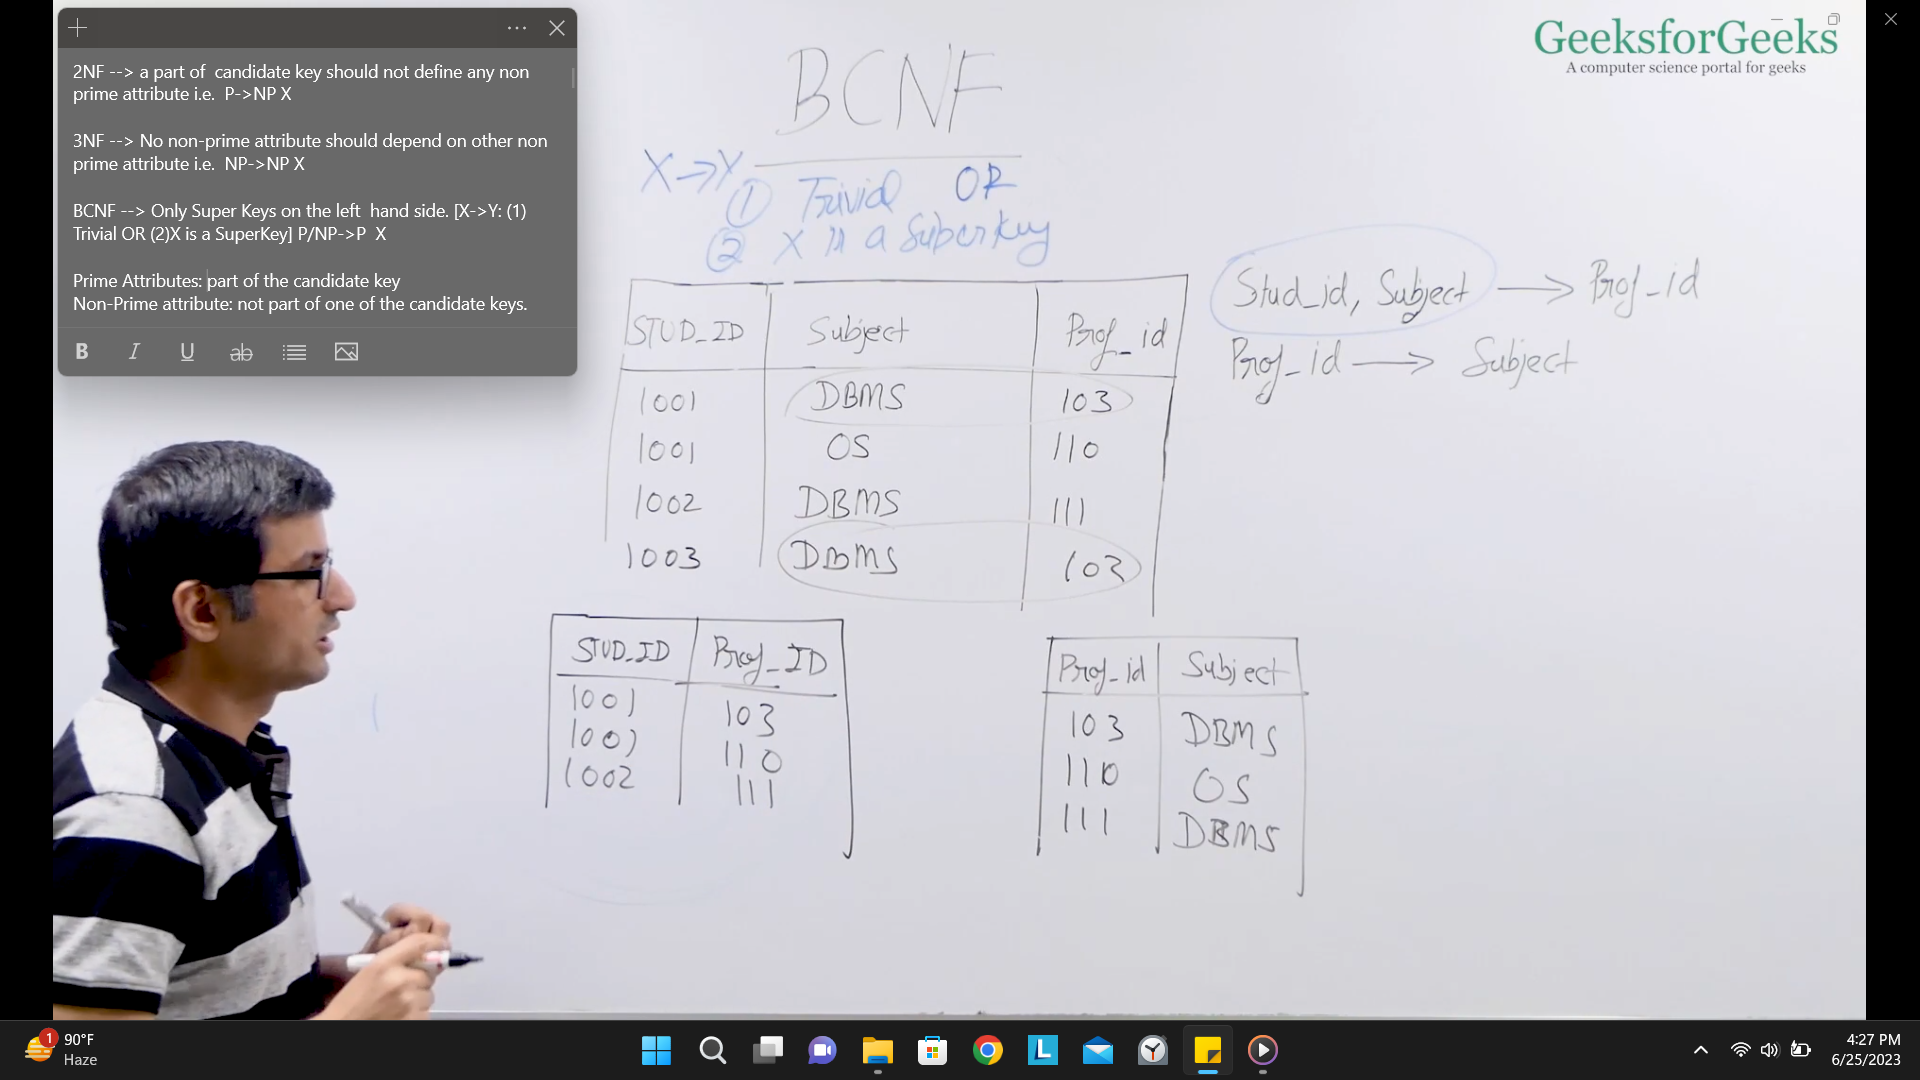 2NF --> a part of  candidate key should not define any non
prime attribute i.e.  P->NP X
3NF --> No non-prime attribute should depend on other non
prime attribute i.e.  NP->NP X
BCNF --> Only Super Keys on the left  hand side. [X->Y: (1)
Trivial OR (2)X is a SuperKey] P/NP->P  X
Prime Attributes: part of the candidate key
Non-Prime attribute: not part of one of the candidate keys.
B I U ab
GeeksforGeeks
A computer science portal for geeks
BCNF
X→Y
① Trivial OR
② X is a Superkey
STUD_ID Subject Prof_id
1001 DBMS 103
1001 OS 110
1002 DBMS 111
1003 DBMS 103
Stud_id, Subject → Prof_id
Prof_id → Subject
STUD_ID Prof_ID
1001 103
1001 110
1002 111
Prof_id Subject
103 DBMS
110 OS
111 DBMS
1
90°F
Haze
L
4:27 PM
6/25/2023